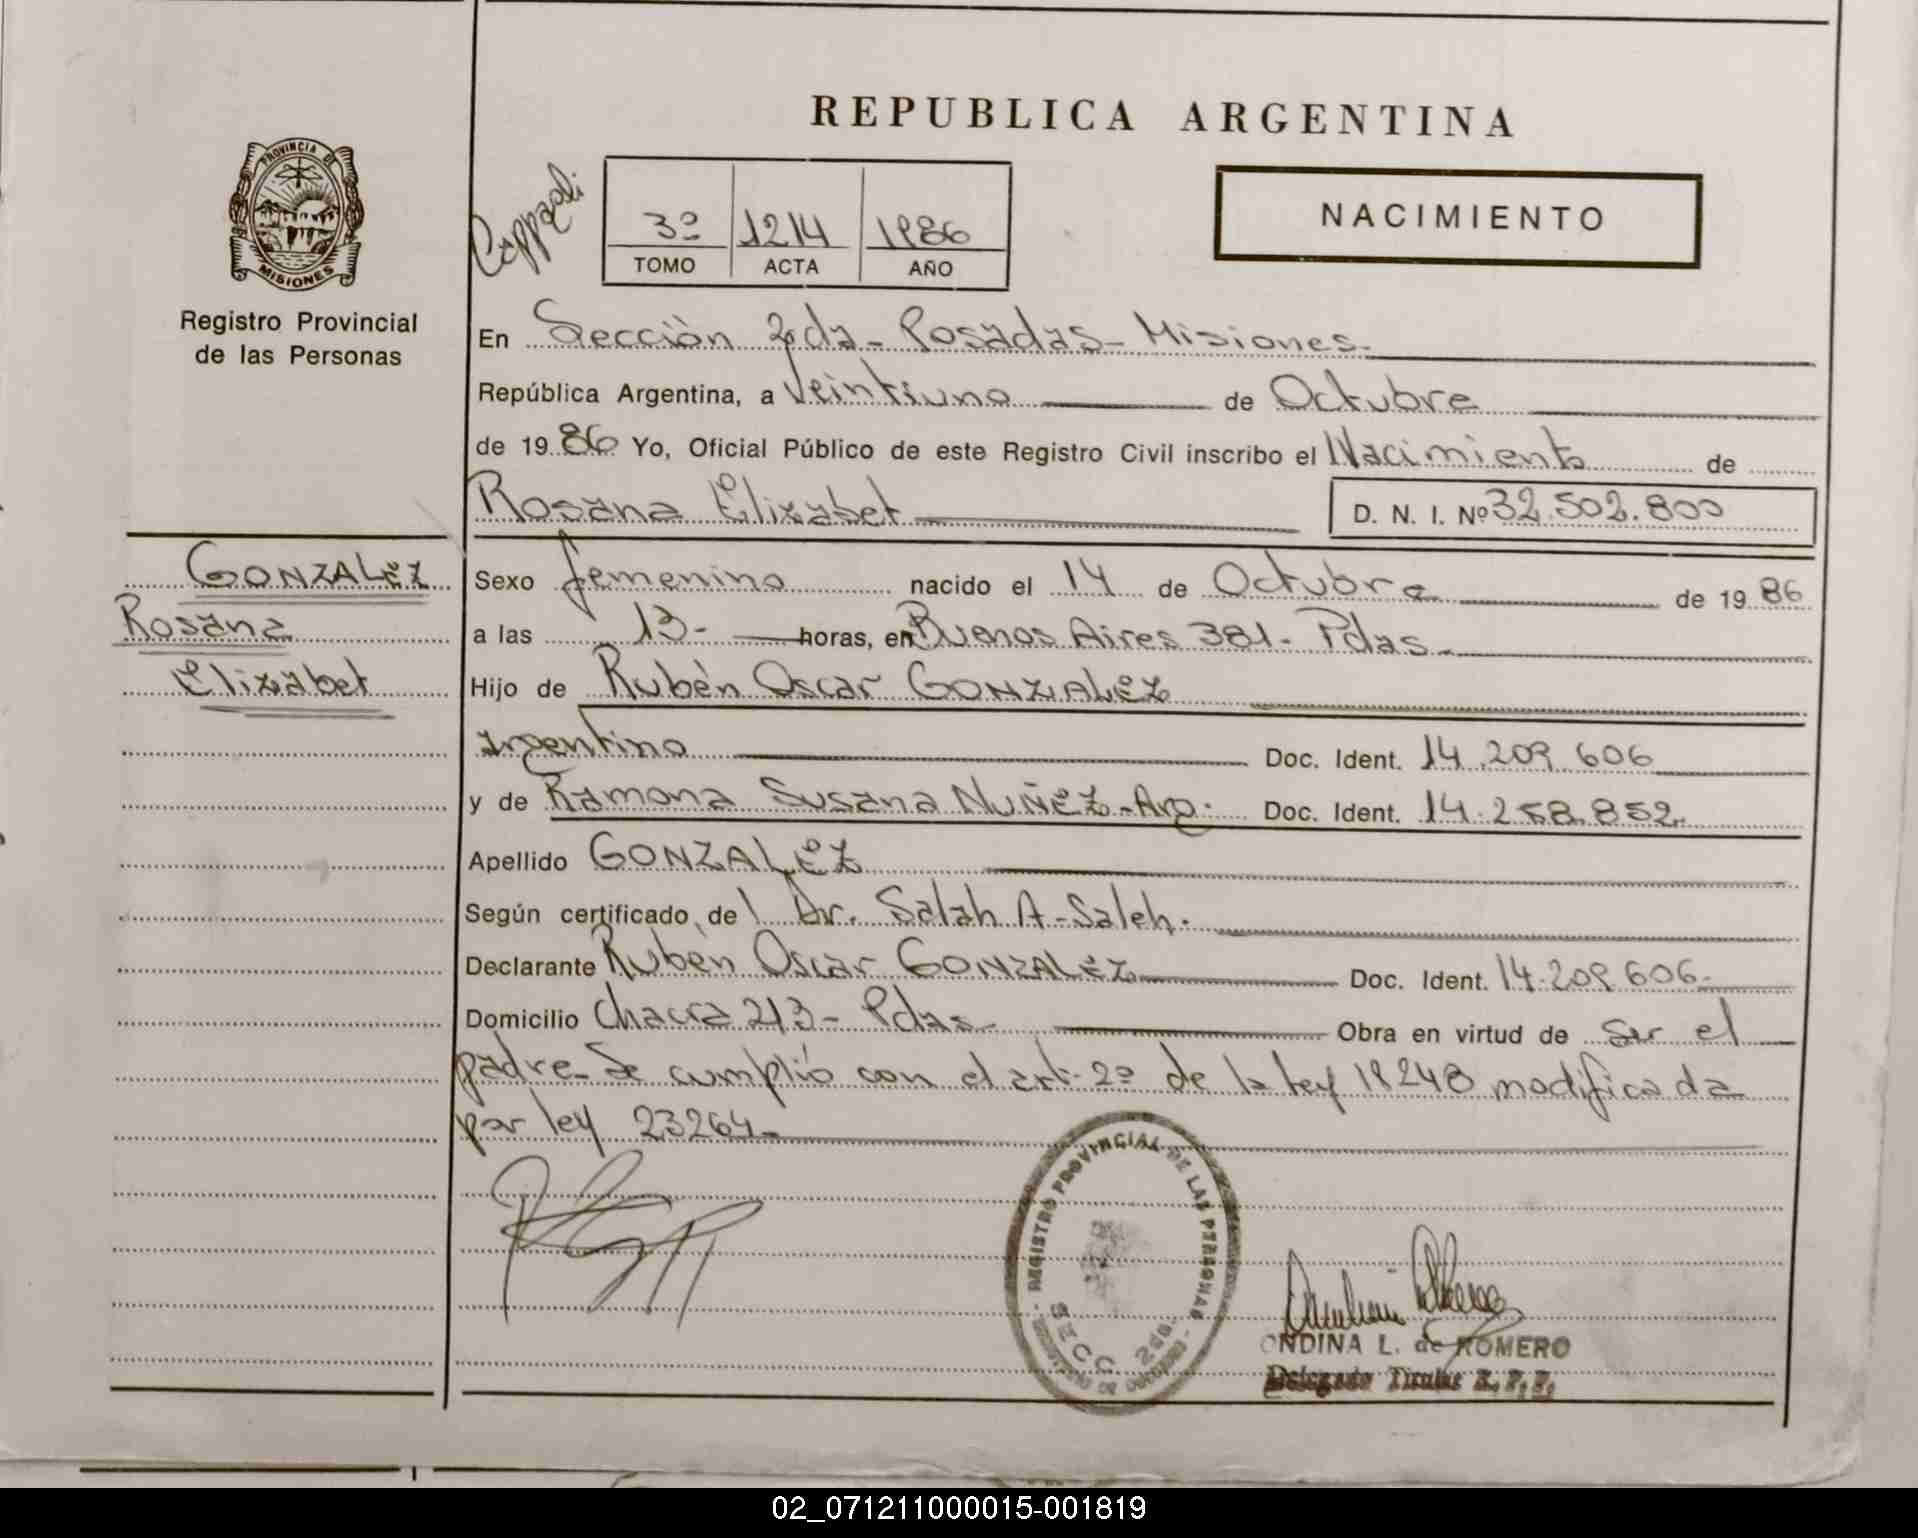 REPUBLICA ARGENTINA
PROVINCIA DE
MISIONES
Registro Provincial
de las Personas
3º 1214 1986
TOMO ACTA AÑO
NACIMIENTO
En Sección 2da - Posadas - Misiones.
República Argentina, a Veintiuno de Octubre
de 1986 Yo, Oficial Público de este Registro Civil inscribo el Nacimiento de
Rosana Elizabet D. N. I. Nº 32.502.800
GONZALEZ
Rosana
Elizabet
Sexo femenino nacido el 14 de Octubre de 1986
a las 13- horas, en Buenos Aires 381 - Pdas.
Hijo de Rubén Oscar GONZALEZ
argentino Doc. Ident. 14.209.606
y de Ramona Susana NUÑEZ - Arg. Doc. Ident. 14.258.852.
Apellido GONZALEZ
Según certificado de Dr. Salah A. Saleh.
Declarante Rubén Oscar GONZALEZ Doc. Ident. 14.209.606.
Domicilio Chacra 213 - Pdas. Obra en virtud de ser el
padre - Se cumplió con el art. 2º de la ley 18248 modificada
por ley 23264.
REGISTRO PROVINCIAL DE LAS PERSONAS
SECC 2da.
ONDINA L. de ROMERO
Delegado Titular R. P. P.
02_071211000015-001819